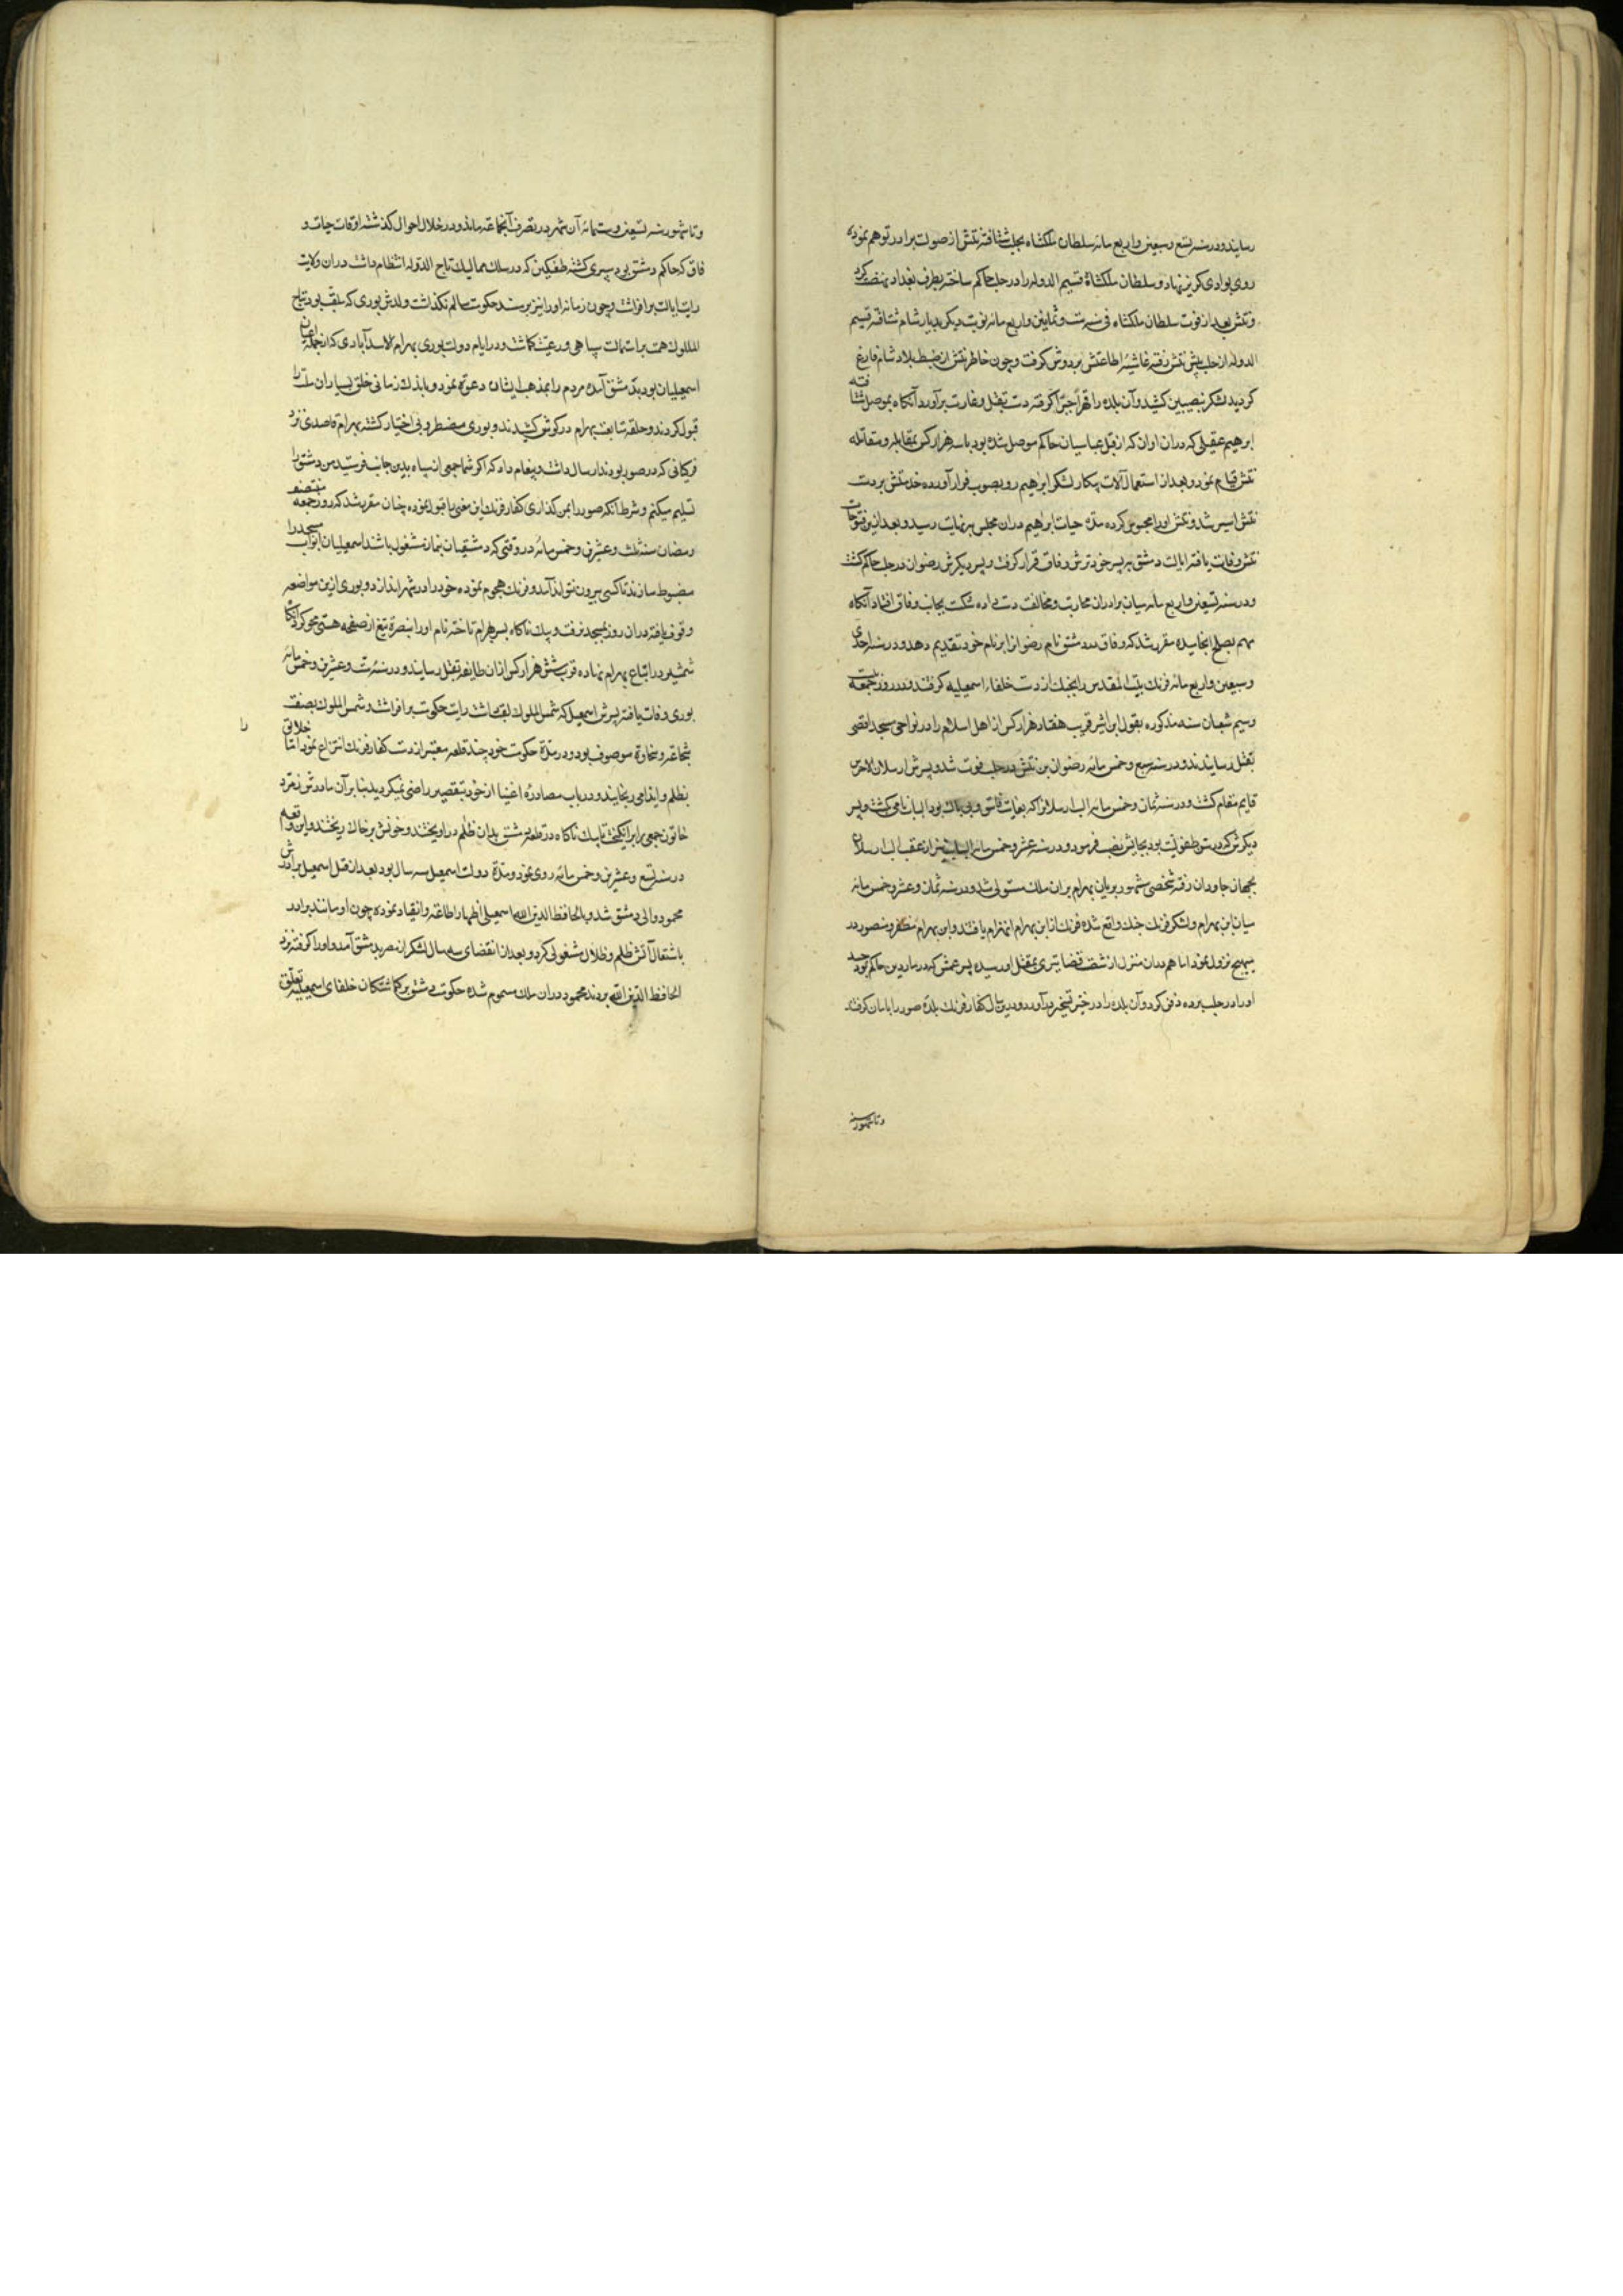 رسانیدند و در سنه تسع و سبعین و اربع مائه سلطان ملکشاه بحلب شتافته تتش از صولت برادر توهم نموده
روی بوادی کریز نهاد و سلطان ملکشاه قسیم الدوله را در حلب حاکم ساخته بطرف بغداد نهضت کرد
و تتش بعد از فوت سلطان ملکشاه فی سنه ست و ثمانین و اربع مائه نوبت دیکر بدیار شام شتافته قسیم
الدوله از حلب پیش تتش رفته غاشیهٔ اطاعتش بر دوش کرفت و چون خاطر تتش از ضبط بلاد شام فارغ
کردید لشکر بنصیبین کشید و آن بلده را قهرا جبرا کرفته دست بقتل و غارت برآورد آنکاه بموصل شتافته
ابرهیم عقیلی که دران اوان که از قبل عباسیان حاکم موصل شده بود با سه هزار کس بمقابله و مقاتله
تتش قیام نمود و بعد از استعمال آلات پیکار لشکر ابرهیم رو بصوب فرار آورده خدمتش بردست
تتش اسیر شد و تتش اورا محبوس کرده مدة حیات ابراهیم دران مجلس بنهایت رسید و بعد ازین فتوحات
تتش وفات یافته ایالت دمشق بر پسر خودترش دقاق قرار کرفت و پسر دیکرش رضوان در حلب حاکم کشت
و در سنه تسعین و اربع مائه میان برادران محاربت و مخالفت دست داده شکست بجانب وفاق افتاد آنکاه
مهم بصلح انجامیده مقرر شد که وفاق در دمشق نام رضوان را بر نام خود تقدیم دهد و در سنه احدی
و سبعین و اربع مائه فرنک بیت المقدس را بجنک از دست خلفاء اسمعیلیه کرفتند و در روز جمعه بیست
وسیم شعبان سنه مذکوره بقول ابن اثیر قریب هفتاد هزار کس از اهل اسلام را در نواحی مسجد اقصی
بقتل رسانیدند و در سنه سبع و خمس مائه رضوان بن تتش در حلب فوت شد و پسرش ارسلان الاخرس
قایم مقام کشت و در سنه ثمان و خمس مائه الب ارسلانرا که بغایت فاسق و بی باک بود البان نامی کشت و پسر
دیکرش که در سن طفولیت بود بجایش نصب فرمود و در سنه عشر و خمس مائه نیز از عقب الب ارسلان
بجهان جاودان رفته شخصی مشهور بر بان بهرام بران ملک مستولی شد و در سنه ثمان و عشر و خمس مائه
میان ابن بهرام و لشکر فرنک جنک واقع شده فرنک از ابن بهرام انهزام یافتند و ابن بهرام مظفر و منصور در
نزول نمود اما هم دران منزل از شست قضا تیری بمقتل او رسیده پسر عمش که در ماردین حاکم بود
اورا در حلب برده دفن کرد و آن بلده را در حیز تسخیر درآورد و درین سال کفار فرنک بلدهٔ صور را بامان کرفتند
و تا شهور سنه
و تا شهور سنه تسعین و ستمائه آن شهر در تصرف آنجماعه ماند و در خلال احوال کذشته اوقات حیات و
فاق که حاکم دمشق بود سپری کشته طغتکین که در سلک ممالیک تاج الدوله انتظام داشت دران ولایت
رایت ایالت برافراشت و چون زمانه اورا نیز بر مسند حکومت سالم نکذاشت ولدش بوری که ملقب بود بتاج
الملوک همت بر استمالت سپاهی و رعیت کماشت و در ایام دولت بوری بهرام الاسد آبادی که از جمله اعیان
اسمعیلیان بود بدمشق آمده مردم را بمذهب ایشان دعوة نمود و باندک زمانی خلق بسیار ان ملت را
قبول کردند و حلقه متابعت بهرام در کوش کشیدند و بوری مضطر و بی اختیار کشته بهرام قاصدی نزد
فرنکانی که در صور بودند ارسال داشت و پیغام داد که اکر شما جمعی از سپاه بدین جانب فرستید من دمشق را
تسلیم میکنم و شرط آنکه صور را بمن کذاری کفار فرنک این معنی را قبول نموده چنان مقرر شد که روز جمعه منتصف
رمضان سنه ثلث و عشرین و خمس مائه در وقتی که دمشقیان بنماز مشغول باشند اسمعیلیان ابواب مسجد را
مضبوط سازند تا کسی بیرون نتواند آمد و فرنک هجوم نموده خود را در شهر اندازد و بوری ازین مواضعه
وقوف یافته دران روز بمسجد نرفت و بیک ناکاه بسر بهرام تاخته نام اورا بضرب تیغ از صفحه هستی محو کرد آنکاه
شمشیر در اتباع بهرام نهاده قرب شش هزار کس ازان طایفه بقتل رسانید و در سنه ست و عشرین و خمس مائه
بوری وفات یافته پسرش اسمعیل که شمس الملوک لقب داشت رایت حکومت برافراشت و شمس الملوک بصفت
شجاعه و سخاوة موصوف بود و در مدة حکومت خود چند قلعه معتبر از دست کفار فرنک انتزاع نمود اما خلایق را
بظلم و ایذا می رنجانید و در باب مصادرهٔ اغنیا از خود بتقصیر راضی نمیکردید بنا بر آن مادرش زمرد
خاتون جمعی را برانکیخت تا بیک ناکاه در قلعه دمشق بدان ظلم دراویختند و خونش بر خاک ریختند و این واقعه
در سنه تسع و عشرین و خمس مائه روی نمود و مدة دولت اسمعیل سه سال بود بعد از قتل اسمعیل برادرش
محمود والی دمشق شد و بالحافظ الدین الله اسمعیلی اظهار اطاعة و انقیاد نموده چون او مانند برادر
باشتعال آتش ظلم و ظلال مشغولی کرد و بعد از انقضای سه سال لشکر از مصر بدمشق آمد و اورا کرفته نزد
الحافظ الدین الله بردند محمود دران ملک مسموم شده حکومت دمشق بر کماشتکان خلفای اسمعیلیه تعلق